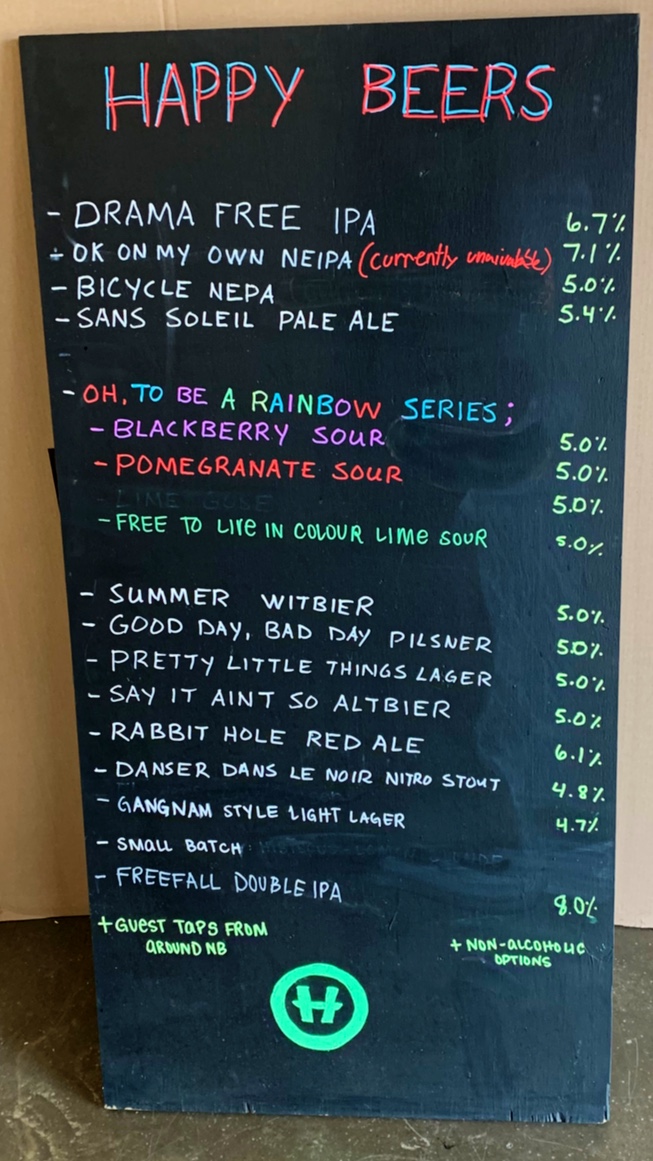 HAPPY BEERS
- DRAMA FREE IPA 6.7%
- OK ON MY OWN NEIPA (currently unaivable) 7.1%
- BICYCLE NEPA 5.0%
- SANS SOLEIL PALE ALE 5.4%
-
- OH, TO BE A RAINBOW SERIES;
- BLACKBERRY SOUR 5.0%
- POMEGRANATE SOUR 5.0%
- LIME GOSE 5.0%
- FREE TO LIVE IN COLOUR LIME SOUR 5.0%
- SUMMER WITBIER 5.0%
- GOOD DAY, BAD DAY PILSNER 5.0%
- PRETTY LITTLE THINGS LAGER 5.0%
- SAY IT AINT SO ALTBIER 5.0%
- RABBIT HOLE RED ALE 6.1%
- DANSER DANS LE NOIR NITRO STOUT 4.8%
- GANGNAM STYLE LIGHT LAGER 4.7%
- SMALL BATCH
- FREEFALL DOUBLE IPA 8.0%
+ GUEST TAPS FROM
AROUND NB
+ NON-ALCOHOLIC
OPTIONS
H